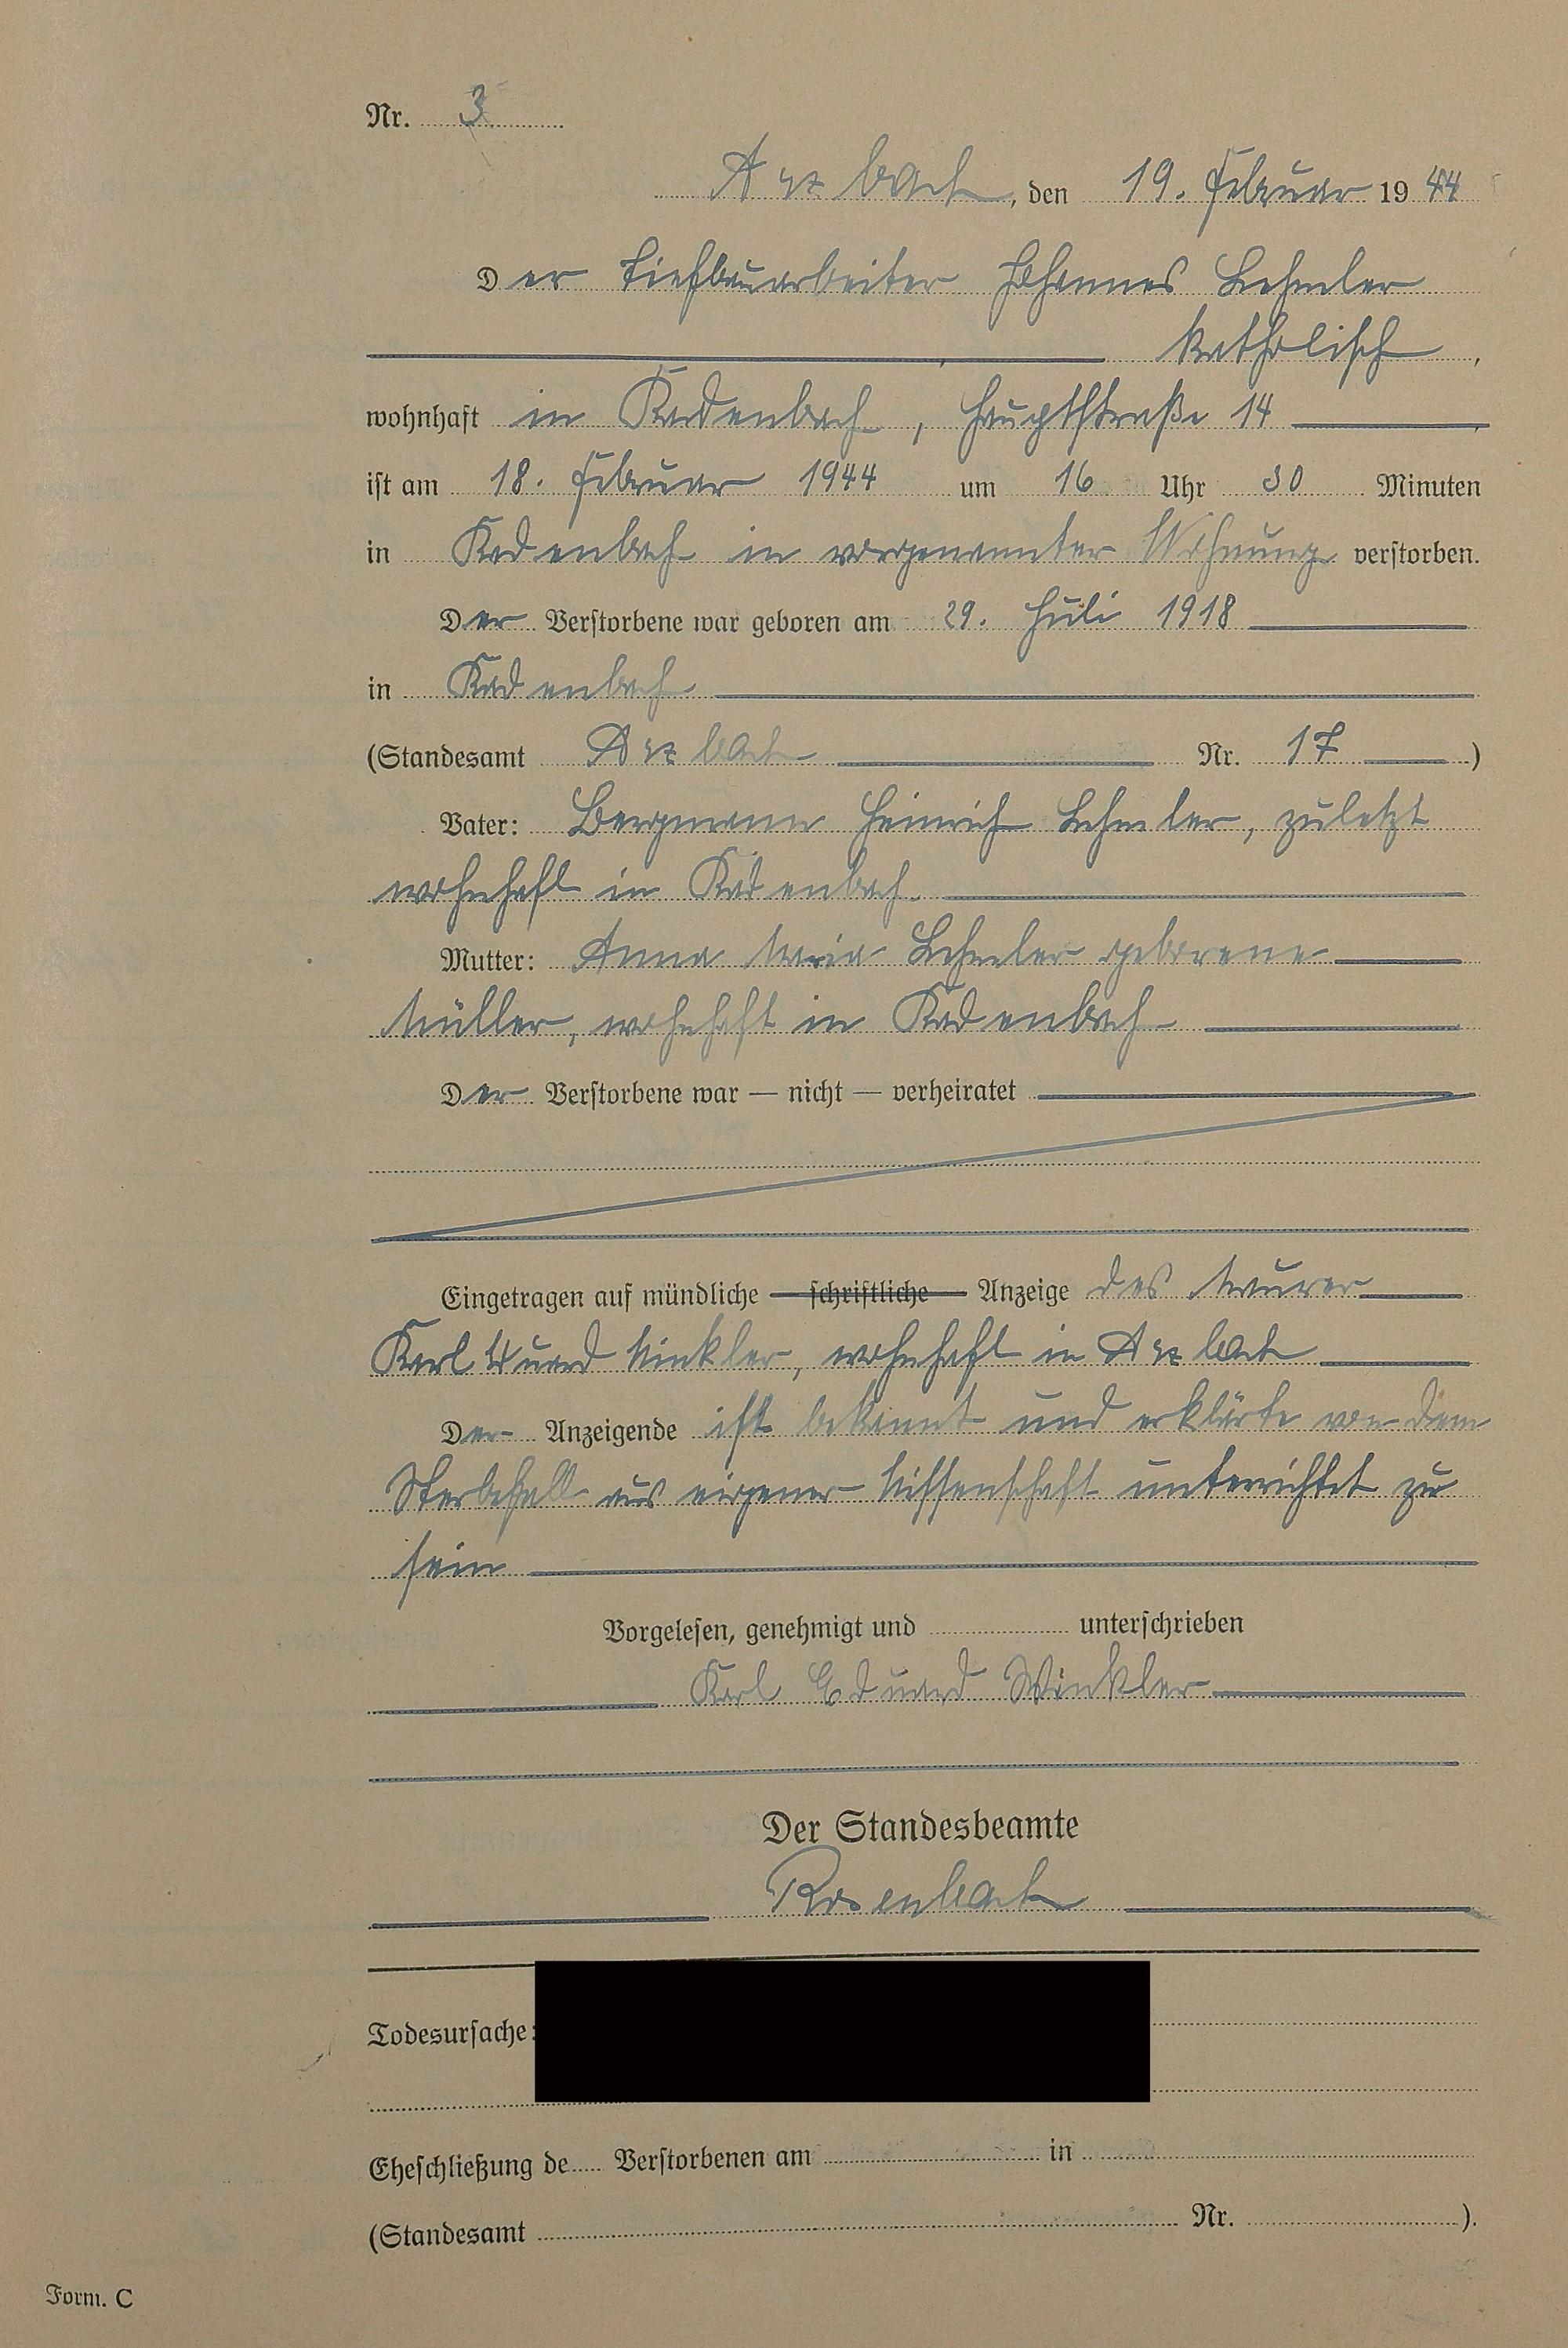 Nr. 3
Arzbach, den 19. Februar 1944
Der Tiefbauarbeiter Johannes Lehmler
katholisch,
wohnhaft in Kadenbach, Hauptstraße 14
ist am 18. Februar 1944 um 16 Uhr 30 Minuten
in Kadenbach in vorgenannter Wohnung verstorben.
Der Verstorbene war geboren am 29. Juli 1918
in Kadenbach
(Standesamt Arzbach Nr. 17)
Vater: Bergmann Heinrich Lehmler, zuletzt
wohnhaft in Kadenbach.
Mutter: Anna Maria Lehmler geborene
Müller, wohnhaft in Kadenbach
Der Verstorbene war — nicht — verheiratet
Eingetragen auf mündliche — schriftliche — Anzeige des Maurer
Karl Eduard Winkler, wohnhaft in Arzbach
Der Anzeigende ist bekannt und erklärte von dem
Sterbefall aus eigener Wissenschaft unterrichtet zu
sein
Vorgelesen, genehmigt und unterschrieben
Karl Eduard Winkler
Der Standesbeamte
Rosenbach
Todesursache:
Eheschließung de Verstorbenen am in
(Standesamt Nr. ).
Form. C